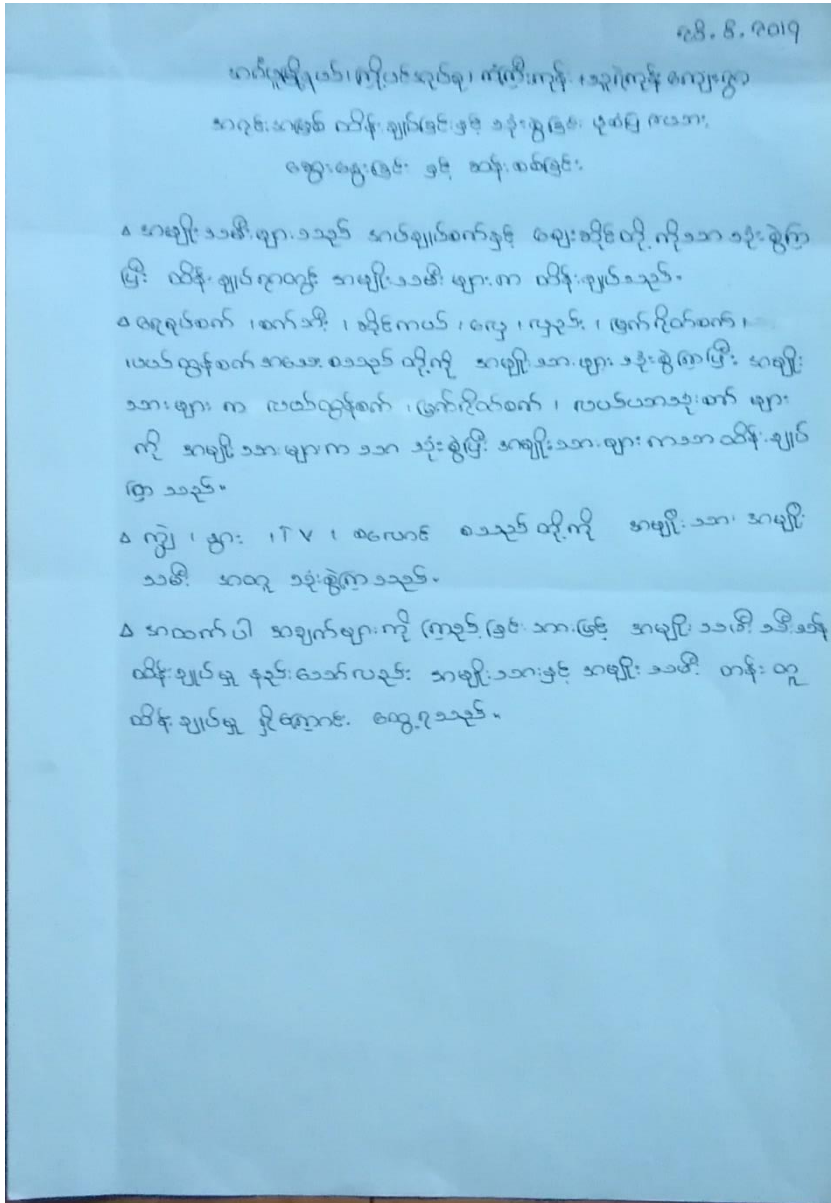 28.8.2019
ကြို့ပင်ဆုပ်စု၊ ကံကြီးကုန်း၊ ကျေးရွာ
အရင်းအမြစ် ထိန်းချုပ်ခြင်းနှင့် သုံးစွဲခြင်း ပုံစံပြ ဇယား
ဆွေးနွေးခြင်း နှင့် ဆန်းစစ်ခြင်း
∆ အမျိုးသမီးများသည် အပ်ချုပ်စက်နှင့် ဈေးဆိုင်တို့ကိုသာ သုံးစွဲကြ
ပြီး ထိန်းချုပ်ရာတွင် အမျိုးသမီးများက ထိန်းချုပ်သည်။
∆ ရေစုပ်စက်၊ စက်ဘီး၊ ဆိုင်ကယ်၊ လှေ၊ လှည်း၊ မြက်ရိတ်စက်၊
လယ်ထွန်စက် အသေးစသည်တို့ကို အမျိုးသားများ သုံးစွဲကြပြီး အမျိုး
သားများ က လယ်ထွန်စက်၊ မြက်ရိတ်စက်၊ လယ်ယာသုံးစက် များ
ကို အမျိုးသားများက သာ သုံးစွဲပြီး အမျိုးသားများကသာ ထိန်းချုပ်
ကြသည်။
∆ ကျွဲ၊ နွား၊ TV၊ စလောင်း စသည်တို့ကို အမျိုးသား အမျိုး
သမီး အတူ သုံးစွဲကြသည်။
∆ အထက်ပါ အချက်များကို ကြည့်ခြင်းအားဖြင့် အမျိုးသမီး သီးသန့်
ထိန်းချုပ်မှု နည်းသော်လည်း အမျိုးသားနှင့် အမျိုးသမီး တန်းတူ
ထိန်းချုပ်မှု ရှိကြောင်း တွေ့ရသည်။